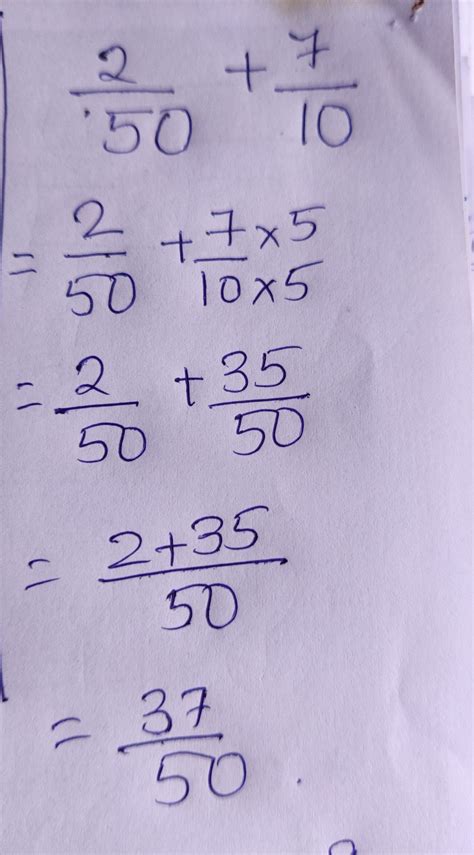 2/50 + 7/10
= 2/50 + 7×5/10×5
= 2/50 + 35/50
= 2+35/50
= 37/50.